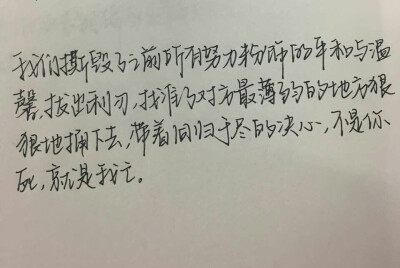 我们撕毁了之前所有努力粉饰的平和与温
馨，拔出利刃，找准了对方最薄弱的地方狠
狠地捅下去，带着同归于尽的决心，不是你
死，就是我亡。